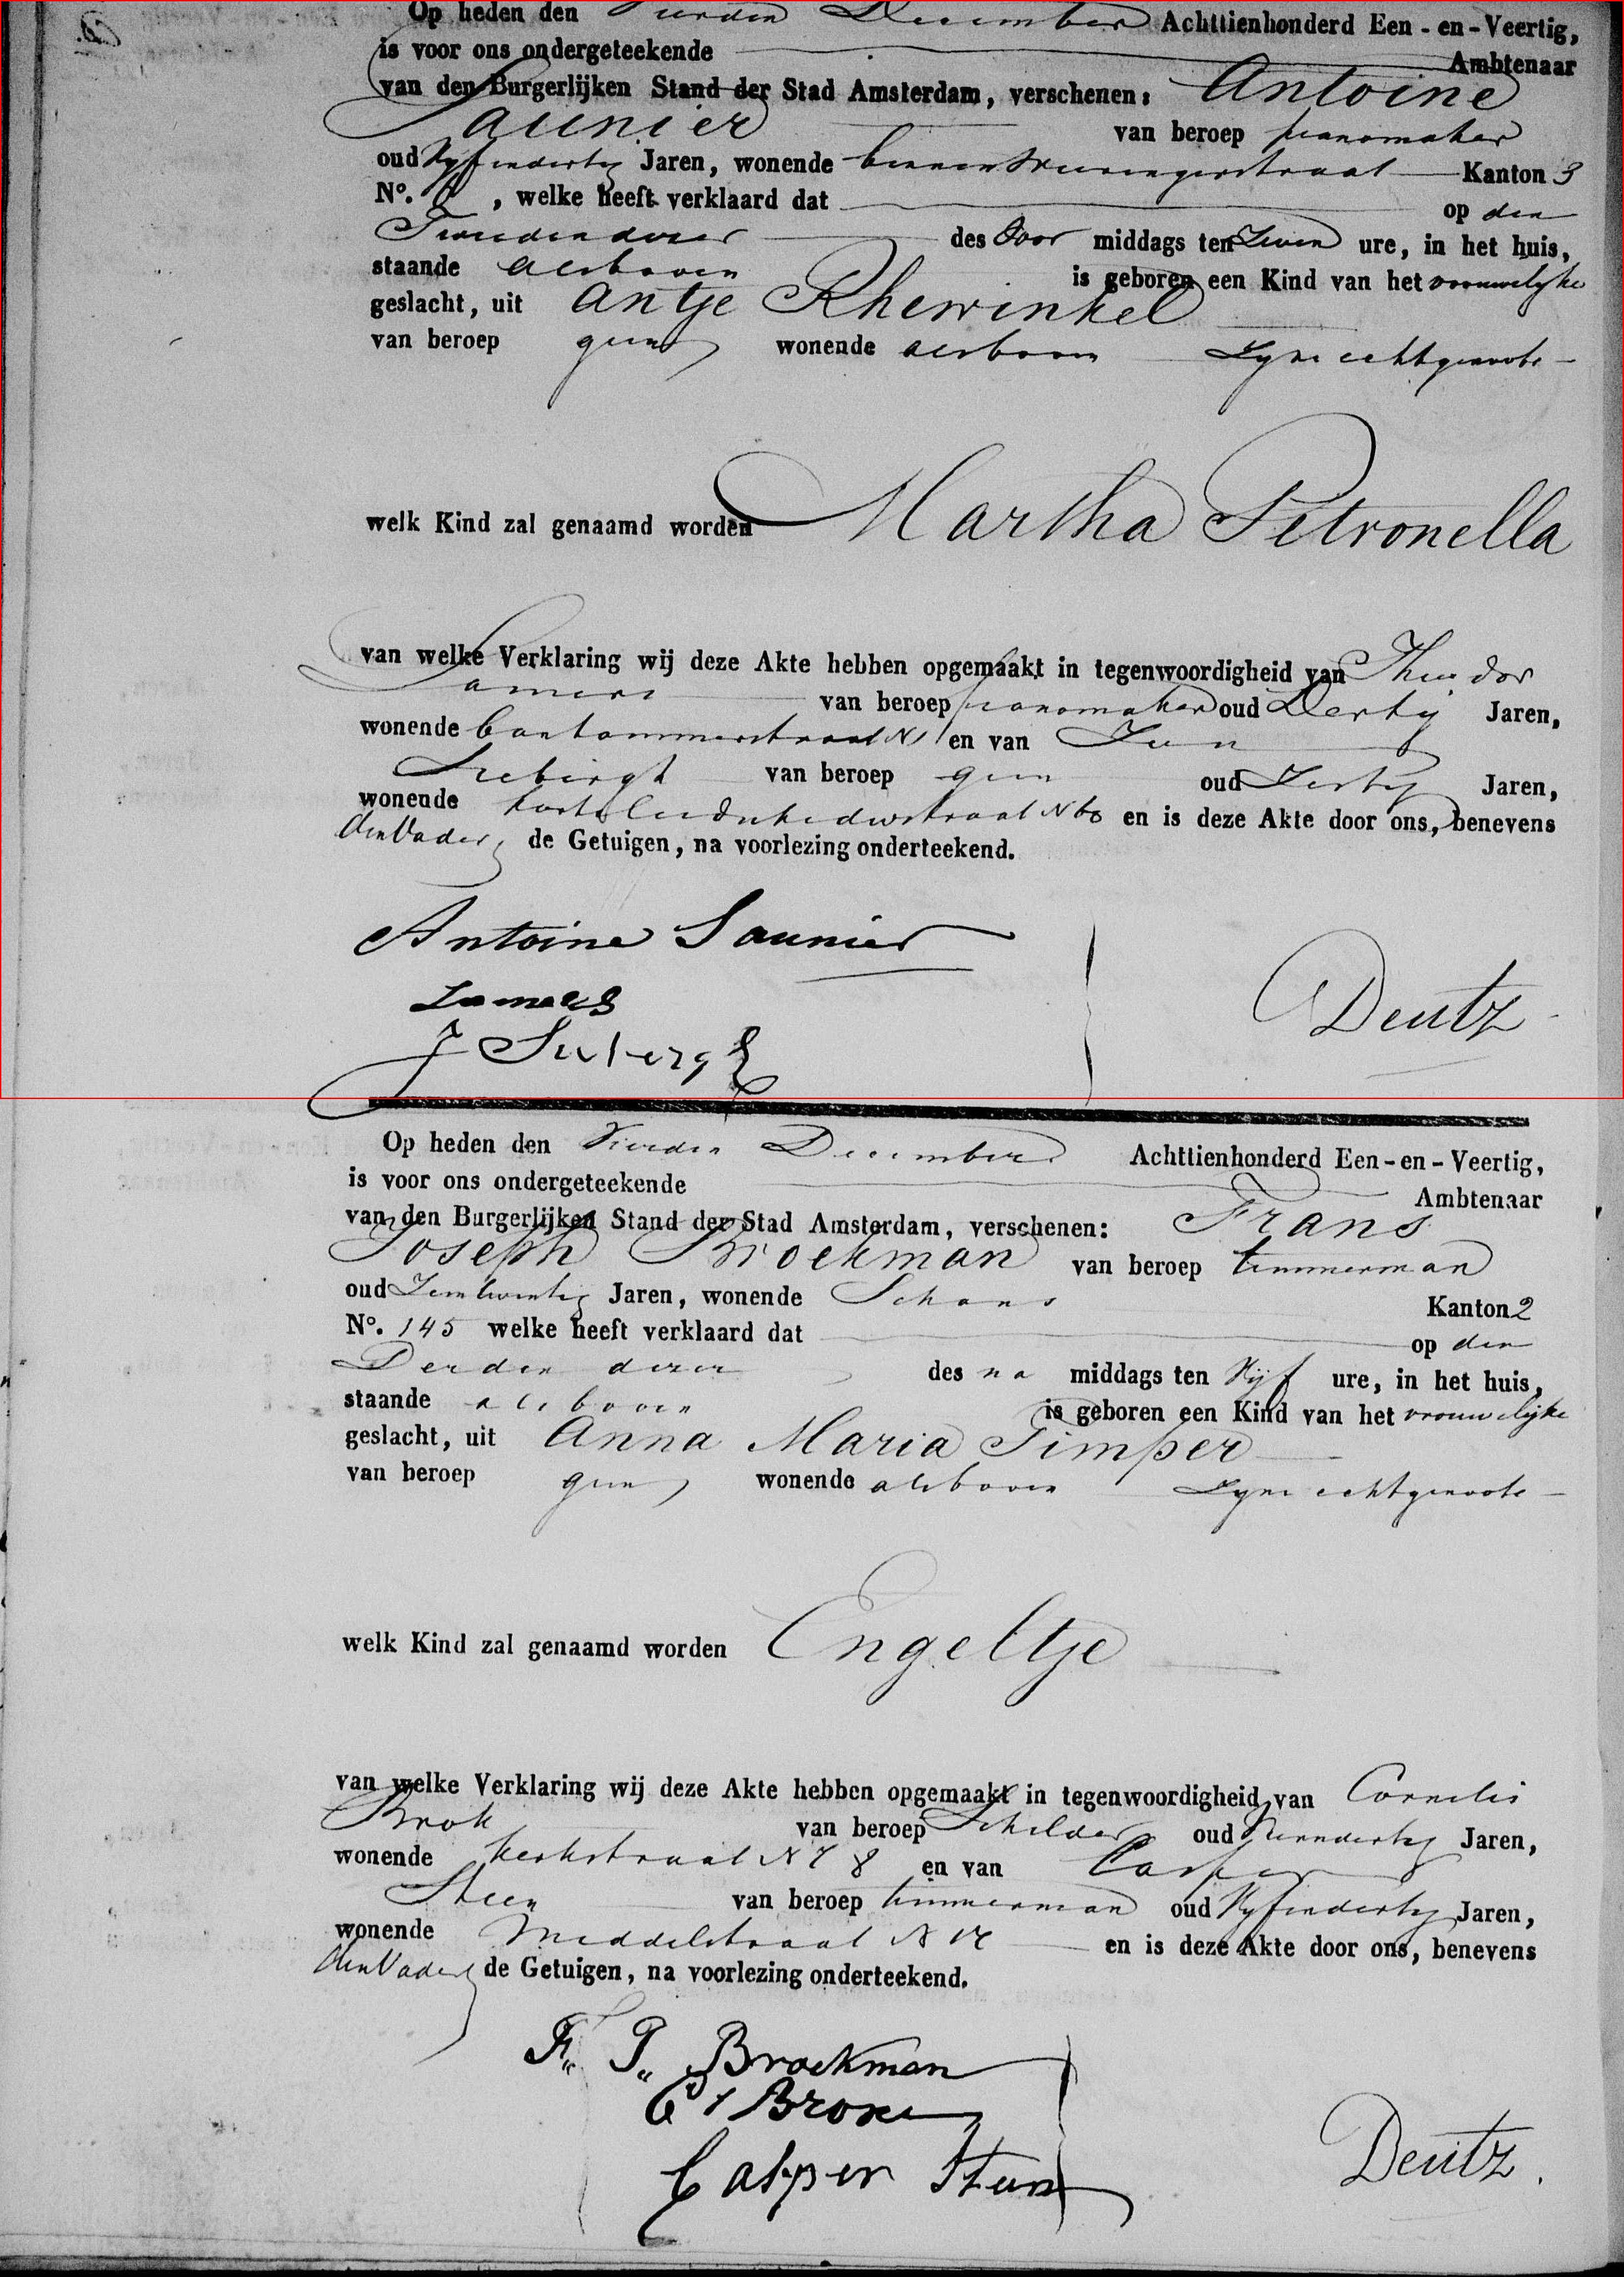 Op heden den Vierden December Achttienhonderd Een-en-Veertig,
is voor ons ondergeteekende Ambtenaar
van den Burgerlijken Stand der Stad Amsterdam, verschenen: Antoine
Saunier van beroep pianomaker
oud Vyfendertig Jaren, wonende binnen Kanton 3
No. , welke heeft verklaard dat op den
Tweeden dezer des Voor middags ten Zeven ure, in het huis,
staande alsboven is geboren een Kind van het vrouwelyke
geslacht, uit Antje Rhewinkel
van beroep geen wonende alsboven Zyne echtgenoote
welk Kind zal genaamd worden Martha Petronella
van welke Verklaring wij deze Akte hebben opgemaakt in tegenwoordigheid van Theodor
Lamers van beroep pianomaker oud Dertig Jaren,
wonende en van Jan
van beroep geen oud Jaren,
wonende korte Leidschedwarsstraat N en is deze Akte door ons, benevens
den Vader, de Getuigen, na voorlezing onderteekend.
Antoine Saunier
Lamers
J
Deutz
Op heden den Vierden December Achttienhonderd Een-en-Veertig,
is voor ons ondergeteekende Ambtenaar
van den Burgerlijken Stand der Stad Amsterdam, verschenen: Frans
Joseph Broekman van beroep timmerman
oud Jaren, wonende Schans Kanton 2
No. 145 welke heeft verklaard dat op den
Derden dezer des na middags ten Vyf ure, in het huis,
staande alsboven is geboren een Kind van het vrouwelyke
geslacht, uit Anna Maria Timper
van beroep geen wonende alsboven Zyne echtgenoote
welk Kind zal genaamd worden Engeltje
van welke Verklaring wij deze Akte hebben opgemaakt in tegenwoordigheid van Cornelis
Brok van beroep Schilder oud Jaren,
wonende Kerkstraat N en van Casper
Steen van beroep timmerman oud Vyfendertig Jaren,
wonende Middelstraat N en is deze Akte door ons, benevens
den Vader, de Getuigen, na voorlezing onderteekend.
F. J. Broekman
C
Casper Steen
Deutz.